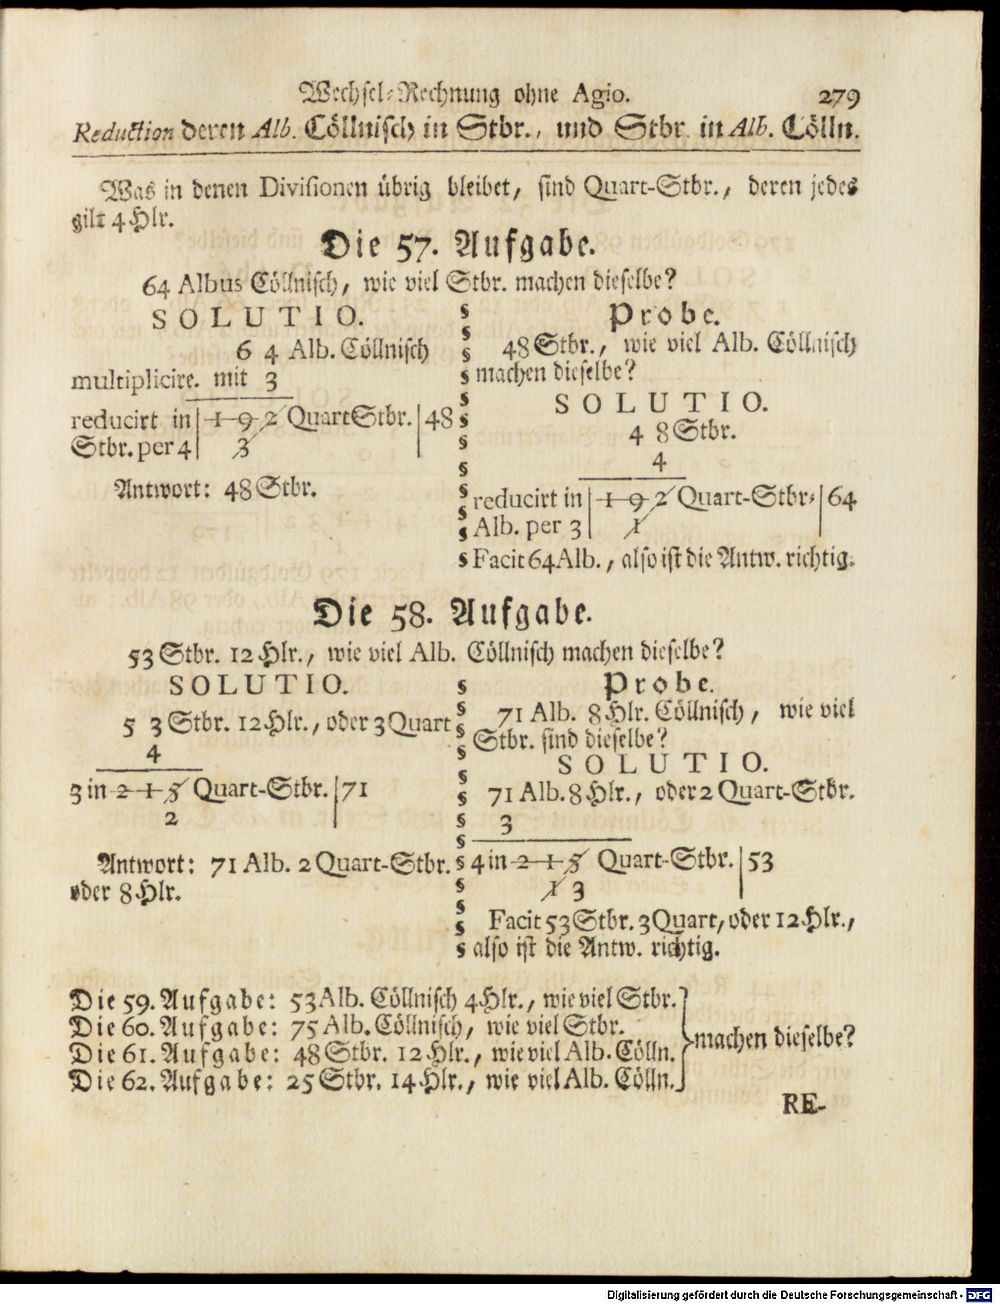 Wechsel-Rechnung ohne Agio. 279
Reduction deren Alb. Cöllnisch in Stbr., und Stbr. in Alb. Cölln.
Was in denen Divisionen übrig bleibet, sind Quart-Stbr., deren jedes
gilt 4 Hlr.
Die 57. Aufgabe.
64 Albus Cöllnisch, wie viel Stbr. machen dieselbe?
SOLUTIO.
6 4 Alb. Cöllnisch
multiplicire. mit 3
reducirt in | 1 9 2 Quart Stbr. | 48
Stbr. per 4 | 3
Antwort: 48 Stbr.
Probe.
48 Stbr., wie viel Alb. Cöllnisch
machen dieselbe?
SOLUTIO.
4 8 Stbr.
4
reducirt in | 1 9 2 Quart-Stbr. | 64
Alb. per 3 | 1
Facit 64 Alb., also ist die Antw. richtig.
Die 58. Aufgabe.
53 Stbr. 12 Hlr., wie viel Alb. Cöllnisch machen dieselbe?
SOLUTIO.
5 3 Stbr. 12 Hlr., oder 3 Quart
4
3 in 2 1 5 Quart-Stbr. | 71
2
Antwort: 71 Alb. 2 Quart-Stbr.
oder 8 Hlr.
Probe.
71 Alb. 8 Hlr. Cöllnisch, wie viel
Stbr. sind dieselbe?
SOLUTIO.
71 Alb. 8 Hlr., oder 2 Quart-Stbr.
3
4 in 2 1 5 Quart-Stbr. | 53
1 3
Facit 53 Stbr. 3 Quart, oder 12 Hlr.,
also ist die Antw. richtig.
Die 59. Aufgabe: 53 Alb. Cöllnisch 4 Hlr., wie viel Stbr.
Die 60. Aufgabe: 75 Alb. Cöllnisch, wie viel Stbr.
Die 61. Aufgabe: 48 Stbr. 12 Hlr., wie viel Alb. Cölln.
Die 62. Aufgabe: 25 Stbr. 14 Hlr., wie viel Alb. Cölln.
machen dieselbe?
RE-
Digitalisierung gefördert durch die Deutsche Forschungsgemeinschaft - DFG